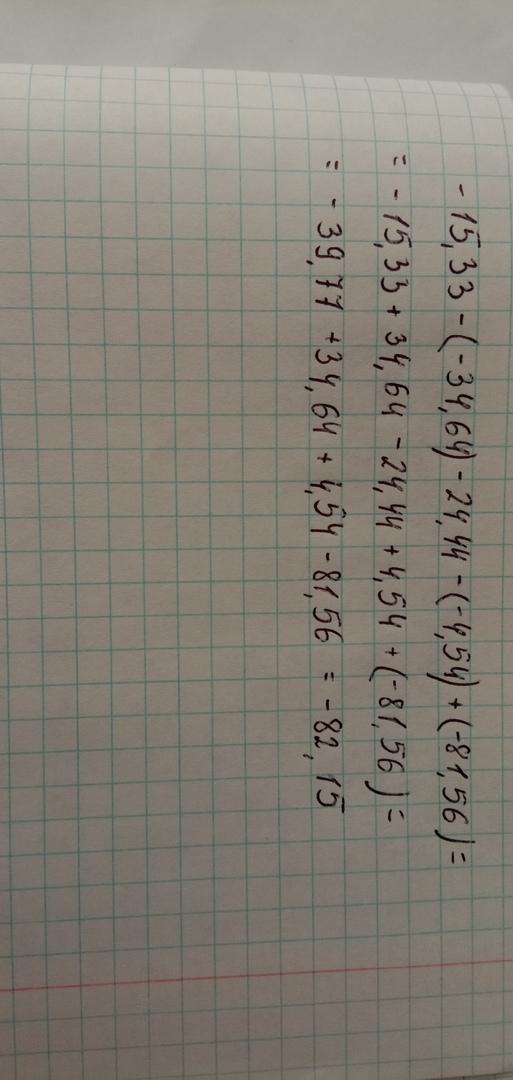 - 15,33 - (-34,64) - 24,44 - (-4,54) + (-81,56) =
= - 15,33 + 34,64 - 24,44 + 4,54 + (-81,56) =
= - 39,77 + 34,64 + 4,54 - 81,56 = -82,15